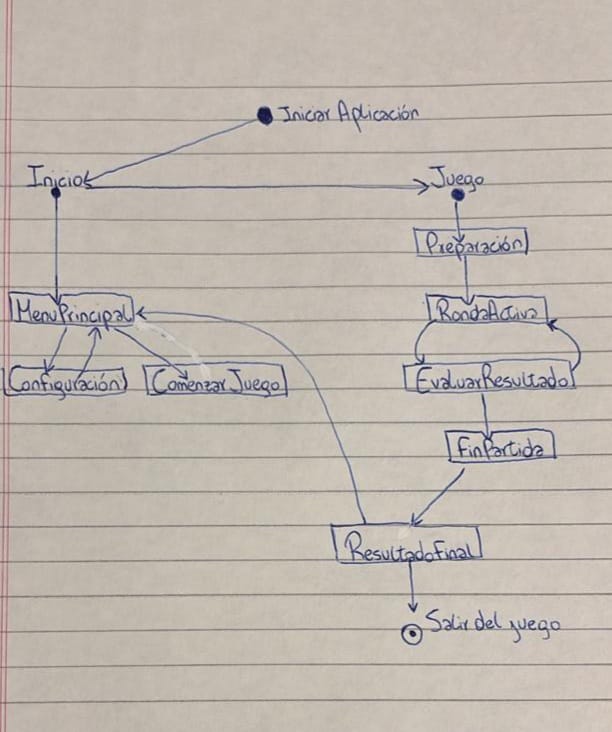 Iniciar Aplicación
Inicio
Juego
Preparación
MenuPrincipal
RondaActiva
Configuración
Comenzar Juego
EvaluarResultado
FinPartida
ResultadoFinal
Salir del juego